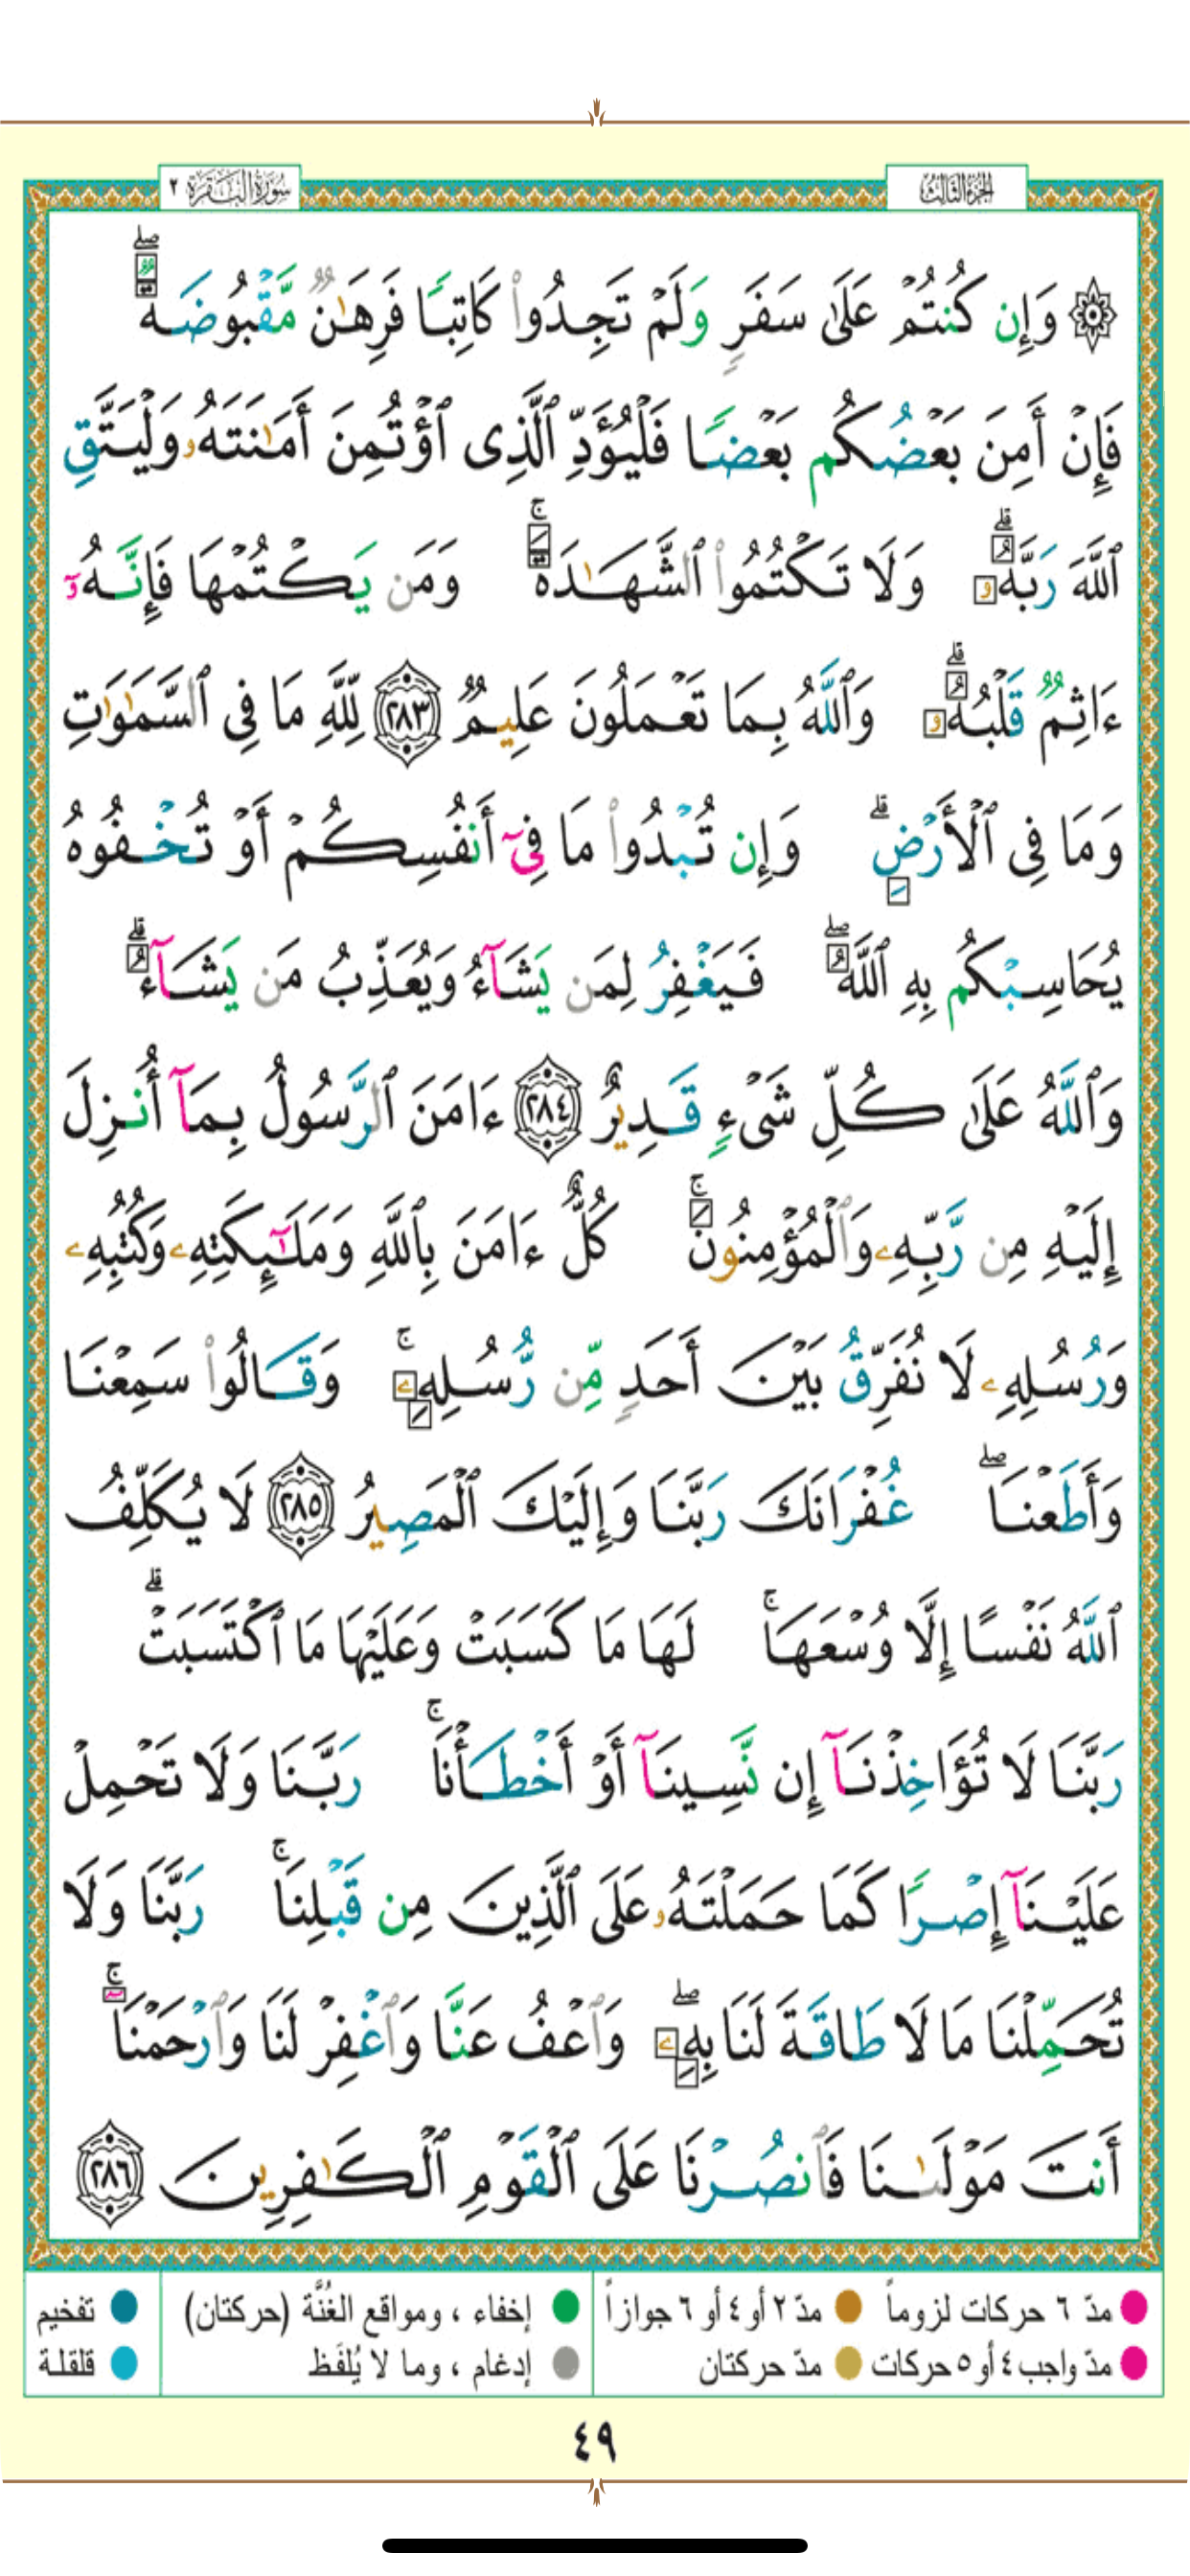 الجزء الثالث
سورة البقرة ٢
۞ وَإِن كُنتُمْ عَلَىٰ سَفَرٍ وَلَمْ تَجِدُوا۟ كَاتِبًا فَرِهَـٰنٌ مَّقْبُوضَةٌ ۖ
فَإِنْ أَمِنَ بَعْضُكُم بَعْضًا فَلْيُؤَدِّ ٱلَّذِى ٱؤْتُمِنَ أَمَـٰنَتَهُۥ وَلْيَتَّقِ
ٱللَّهَ رَبَّهُۥ ۗ وَلَا تَكْتُمُوا۟ ٱلشَّهَـٰدَةَ ۚ وَمَن يَكْتُمْهَا فَإِنَّهُۥٓ
ءَاثِمٌ قَلْبُهُۥ ۗ وَٱللَّهُ بِمَا تَعْمَلُونَ عَلِيمٌ ٢٨٣ لِّلَّهِ مَا فِى ٱلسَّمَـٰوَٰتِ
وَمَا فِى ٱلْأَرْضِ ۗ وَإِن تُبْدُوا۟ مَا فِىٓ أَنفُسِكُمْ أَوْ تُخْفُوهُ
يُحَاسِبْكُم بِهِ ٱللَّهُ ۖ فَيَغْفِرُ لِمَن يَشَآءُ وَيُعَذِّبُ مَن يَشَآءُ ۗ
وَٱللَّهُ عَلَىٰ كُلِّ شَىْءٍ قَدِيرٌ ٢٨٤ ءَامَنَ ٱلرَّسُولُ بِمَآ أُنزِلَ
إِلَيْهِ مِن رَّبِّهِۦ وَٱلْمُؤْمِنُونَ ۚ كُلٌّ ءَامَنَ بِٱللَّهِ وَمَلَـٰٓئِكَتِهِۦ وَكُتُبِهِۦ
وَرُسُلِهِۦ لَا نُفَرِّقُ بَيْنَ أَحَدٍ مِّن رُّسُلِهِۦ ۚ وَقَالُوا۟ سَمِعْنَا
وَأَطَعْنَا ۖ غُفْرَانَكَ رَبَّنَا وَإِلَيْكَ ٱلْمَصِيرُ ٢٨٥ لَا يُكَلِّفُ
ٱللَّهُ نَفْسًا إِلَّا وُسْعَهَا ۚ لَهَا مَا كَسَبَتْ وَعَلَيْهَا مَا ٱكْتَسَبَتْ ۗ
رَبَّنَا لَا تُؤَاخِذْنَآ إِن نَّسِينَآ أَوْ أَخْطَأْنَا ۚ رَبَّنَا وَلَا تَحْمِلْ
عَلَيْنَآ إِصْرًا كَمَا حَمَلْتَهُۥ عَلَى ٱلَّذِينَ مِن قَبْلِنَا ۚ رَبَّنَا وَلَا
تُحَمِّلْنَا مَا لَا طَاقَةَ لَنَا بِهِۦ ۖ وَٱعْفُ عَنَّا وَٱغْفِرْ لَنَا وَٱرْحَمْنَآ ۚ
أَنتَ مَوْلَىٰنَا فَٱنصُرْنَا عَلَى ٱلْقَوْمِ ٱلْكَـٰفِرِينَ ٢٨٦
مدّ ٦ حركات لزوماً مدّ ٢ أو ٤ أو ٦ جوازاً إخفاء ، ومواقع الغُنَّة (حركتان) تفخيم
مدّ واجب ٤ أو ٥ حركات مدّ حركتان إدغام ، وما لا يُلفَظ قلقلة
٤٩